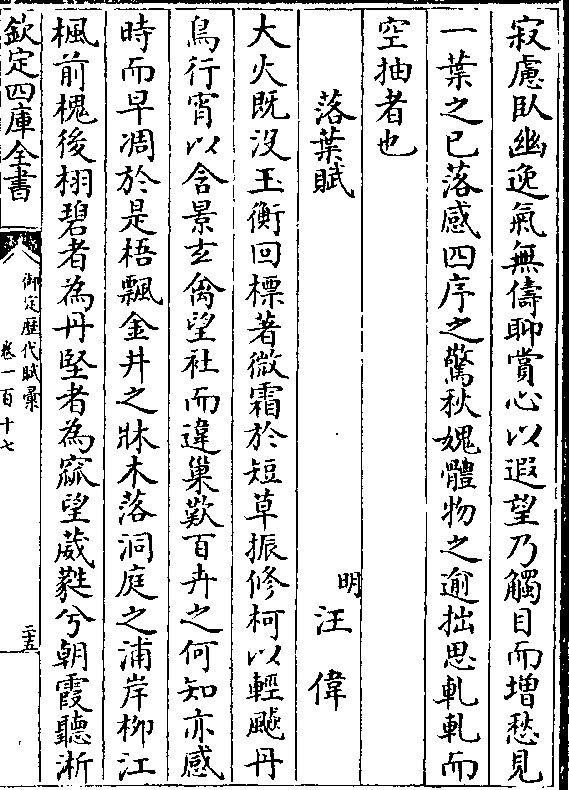 寂慮臥幽逸氣無儔聊賞心以遐望乃觸目而増愁見
一葉之已落感四序之驚秋媿體物之逾拙思軋軋而
空抽者也
落葉賦
明汪偉
大火既没玉衡回標著微霜於短草振修柯以輕飈丹
鳥行宵以含景玄禽望社而違巢歎百卉之何知亦感
時而早凋於是梧飄金井之牀木落洞庭之浦岸柳江
楓前槐後栩碧者為丹堅者為窳望葳蕤兮朝霞聽淅
欽定四庫全書
御定歴代賦彙
卷一百十七
二五